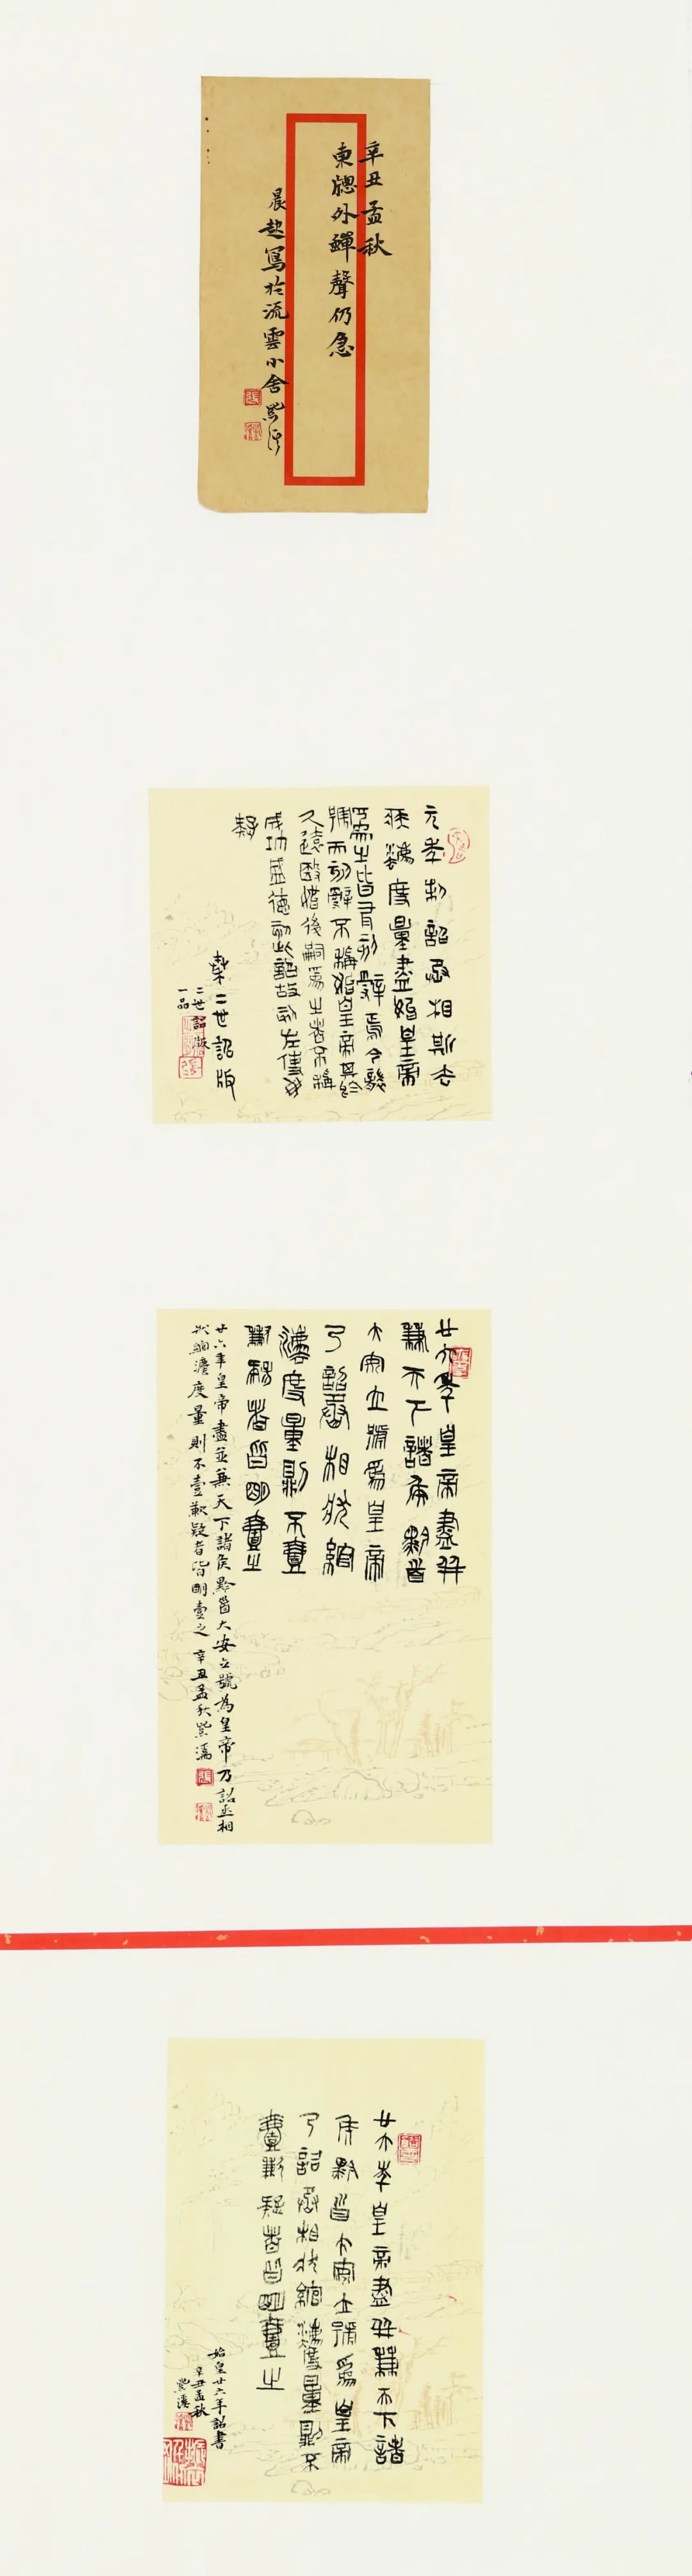 辛丑孟秋
東牕外蟬聲仍急
晨起寫於流雲小舍紫溪
元年制詔丞相斯去
疾灋度量盡始皇帝
為之皆有刻辭焉今襲
號而刻辭不稱始皇帝其於
久遠殹如後嗣為之者不稱
成功盛德刻此詔故刻左使毋
疑
秦二世詔版
二世詔版
一品
廿六年皇帝盡并
兼天下諸侯黔首
大安立號為皇帝
乃詔丞相狀綰
灋度量則不壹
歉疑者皆明壹之
廿六年皇帝盡並兼天下諸侯黔首大安立號為皇帝乃詔丞相
狀綰灋度量則不壹歉疑者皆明壹之辛丑孟秋紫溪
廿六年皇帝盡并兼天下諸
侯黔首大安立號為皇帝
乃詔丞相狀綰灋度量則不
壹歉疑者皆明壹之
始皇廿六年詔書
辛丑孟秋
紫溪